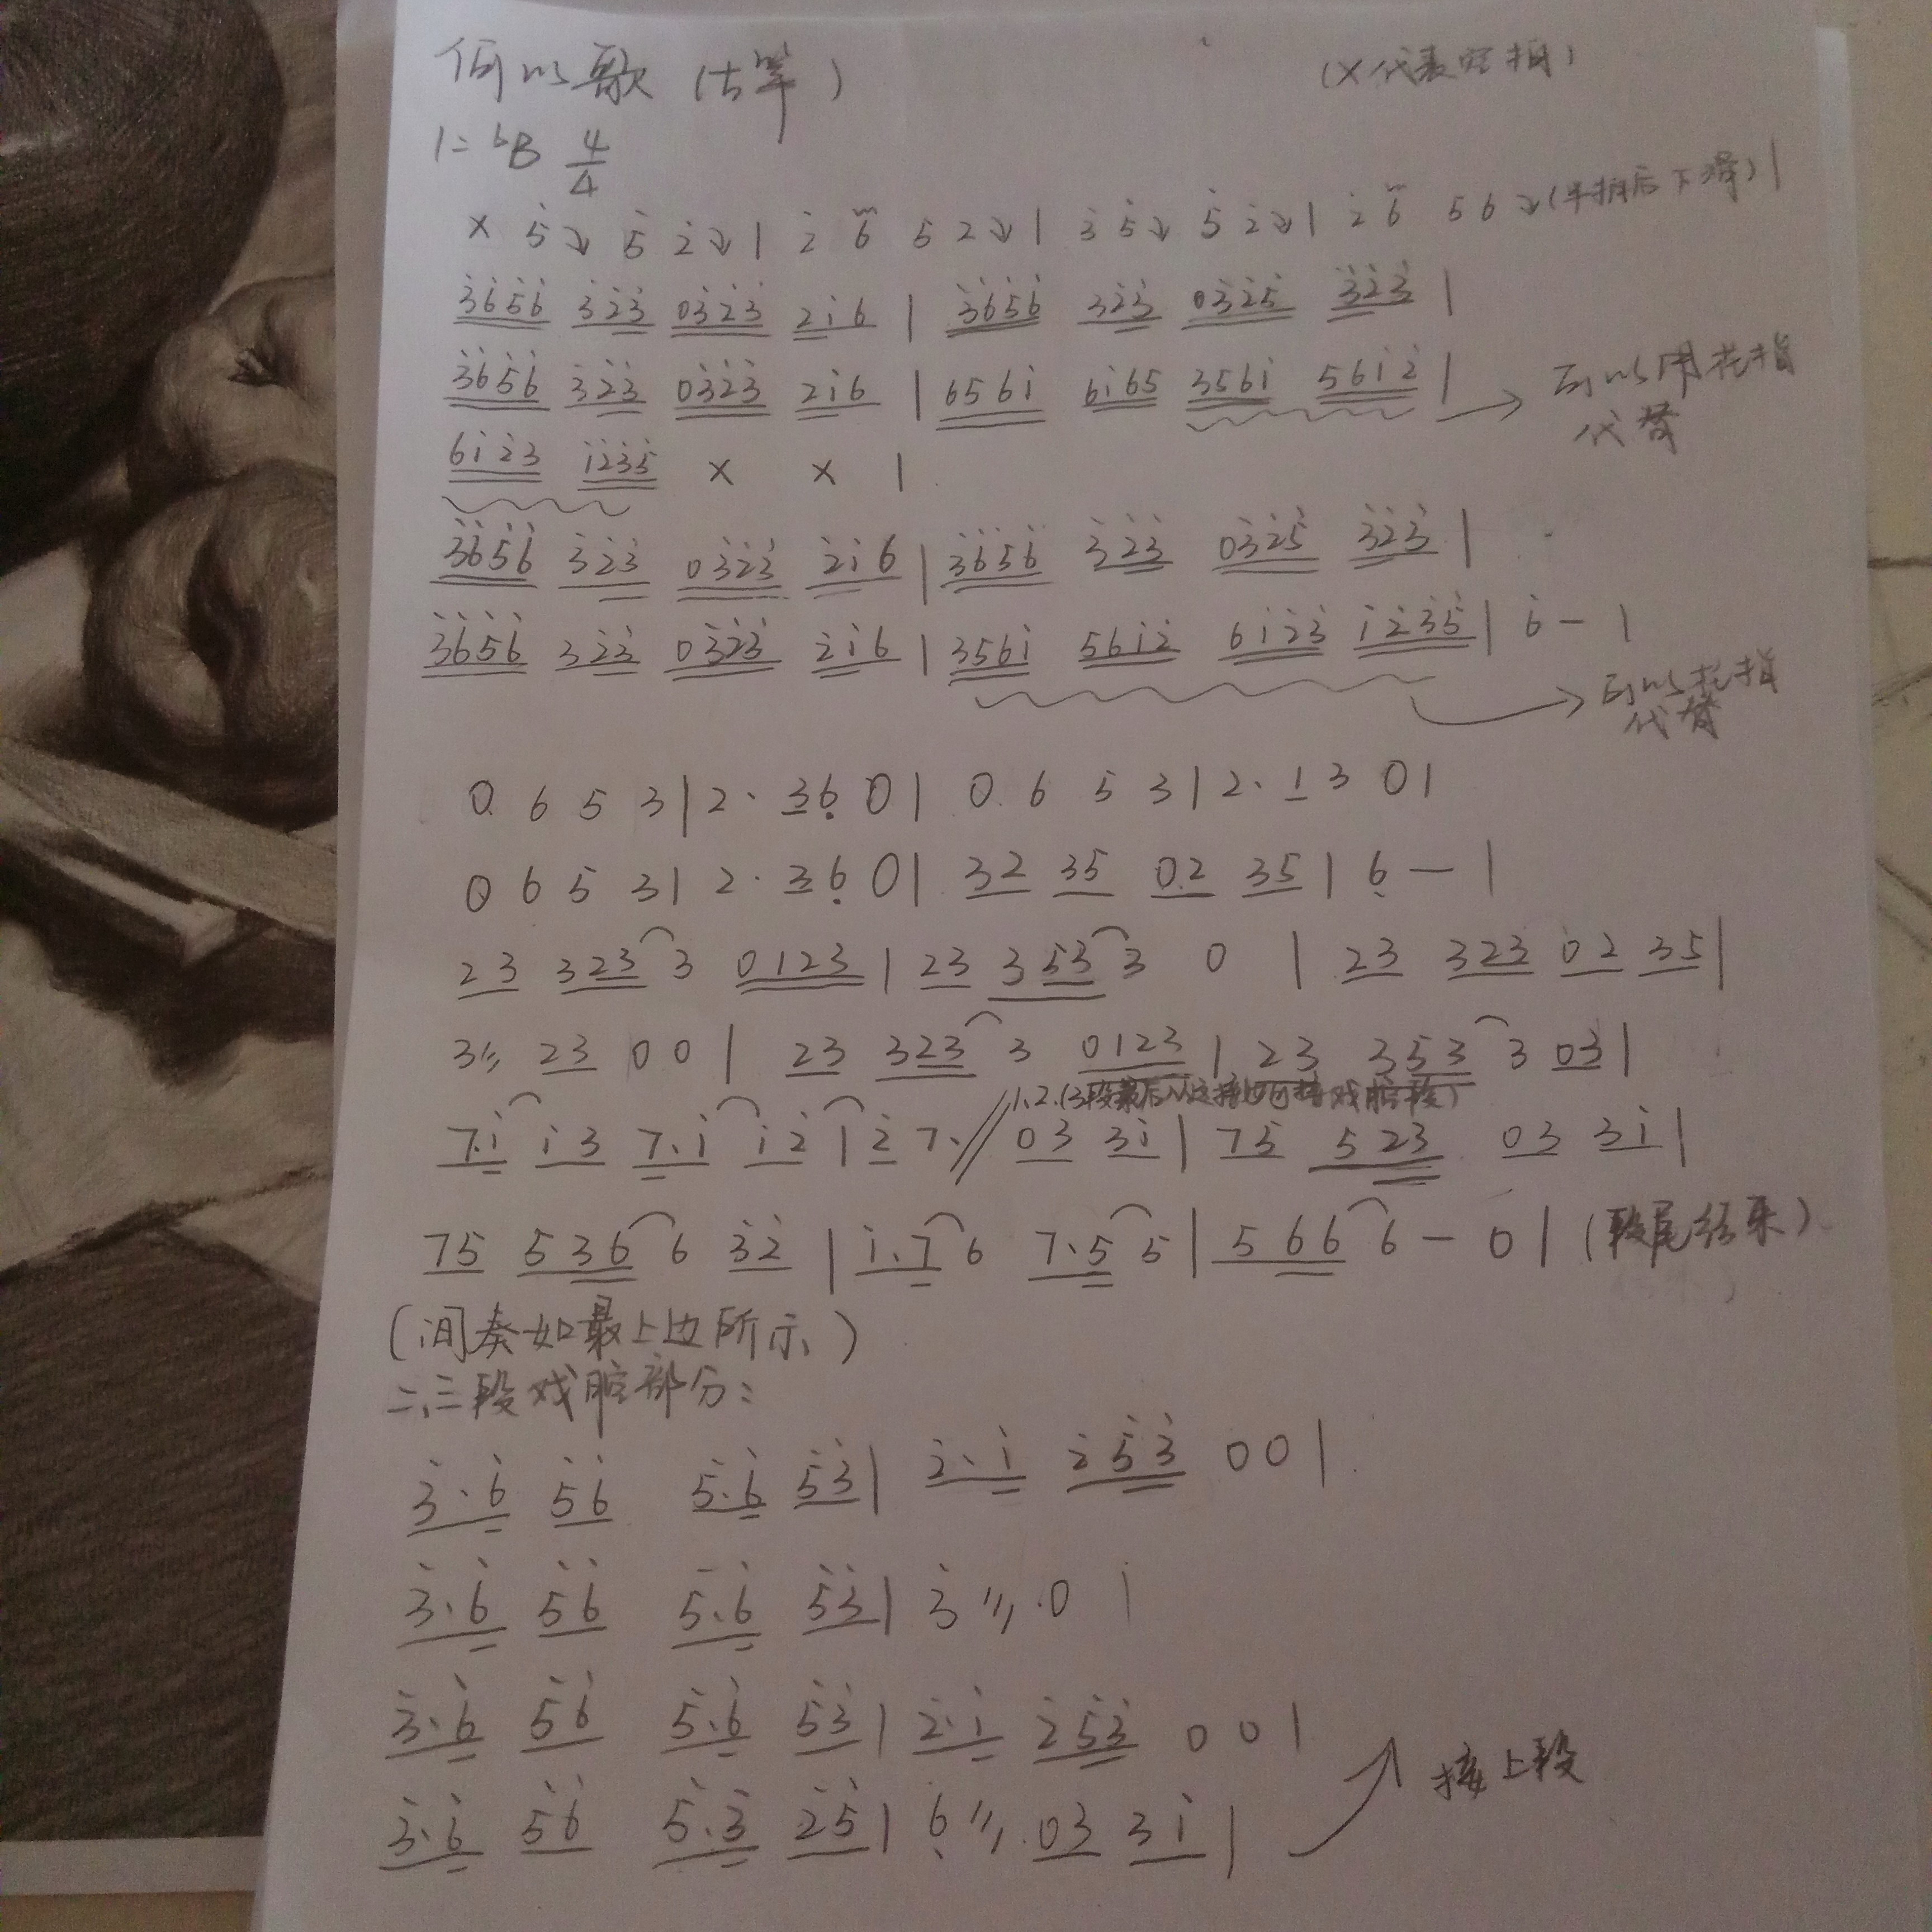 何以歌（古筝） （X代表空拍）
1=ᵇB 4/4
X 5̇↘ 5̇ 2̇↘ | 2̇ 6̇ 5 2↘ | 3̇ 5̇↘ 5̇ 2̇↘ | 2̇ 6̇ 5 6↘（半拍后下滑）|
3̇6̇5̇6̇ 3̇2̇3̇ 03̇2̇3̇ 2̇1̇6 | 3̇6̇5̇6̇ 3̇2̇3̇ 03̇2̇5̇ 3̇2̇3̇ |
3̇6̇5̇6̇ 3̇2̇3̇ 03̇2̇3̇ 2̇1̇6 | 6561̇ 61̇65 3561̇ 561̇2̇ | → 可以用花指代替
61̇2̇3̇ 1̇2̇3̇5̇ X X |
3̇6̇5̇6̇ 3̇2̇3̇ 03̇2̇3̇ 2̇1̇6 | 3̇6̇5̇6̇ 3̇2̇3̇ 03̇2̇5̇ 3̇2̇3̇ |
3̇6̇5̇6̇ 3̇2̇3̇ 03̇2̇3̇ 2̇1̇6 | 3561̇ 561̇2̇ 61̇2̇3̇ 1̇2̇3̇5̇ | 6̇ – |
→ 可以花指代替
0 6 5 3 | 2· 36̣ 0 | 0 6 5 3 | 2· 1 3 0 |
0 6 5 3 | 2· 36̣ 0 | 32 35 02 35 | 6̣ – |
23 323 3 0123 | 23 353 3 0 | 23 323 02 35 |
3〃 23 0 0 | 23 323 3 0123 | 23 353 3 03 |
7·1̇ 1̇3 7·1̇ 1̇2̇ | 2̇ 7· // 03 31̇ | 75 523 03 31̇ |
75 536 6 3̇2̇ | 1̇·7 6 7·5 5 | 566 6 – 0 |（段尾结束）
（间奏如最上边所示）
二、三段戏腔部分：
3̇·6̇ 5̇6̇ 5̇·6̇ 5̇3̇ | 2̇·1̇ 2̇5̇3̇ 0 0 |
3̇·6̇ 5̇6̇ 5̇·6̇ 5̇3̇ | 3̇〃·0 |
3̇·6̇ 5̇6̇ 5̇·6̇ 5̇3̇ | 2̇·1̇ 2̇5̇3̇ 0 0 |
3̇·6̇ 5̇6̇ 5̇·3̇ 2̇5̇ | 6̣〃· 03 31̇ | 接上段